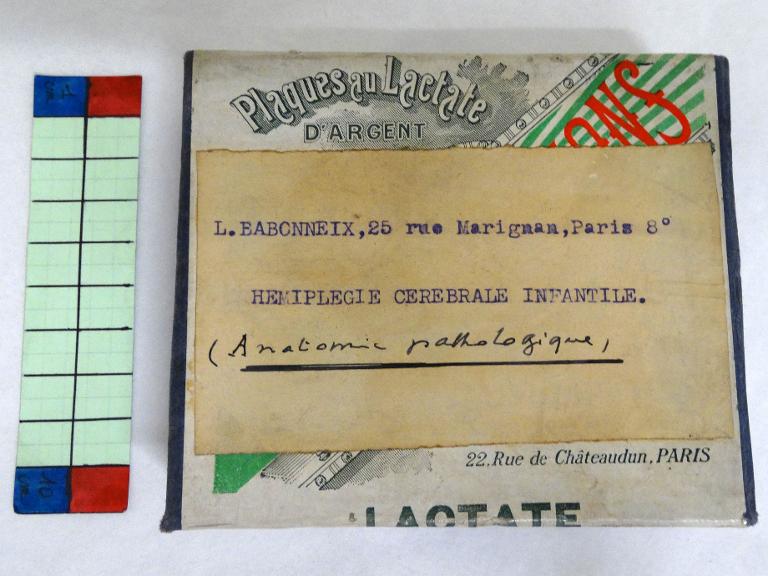 1 cm
Plaques au Lactate
D'ARGENT
L.BABONNEIX,25 rue Marignan,Paris 8°
HEMIPLEGIE CEREBRALE INFANTILE.
(Anatomie pathologique)
22,Rue de Châteaudun,PARIS
LACTATE
10 cm